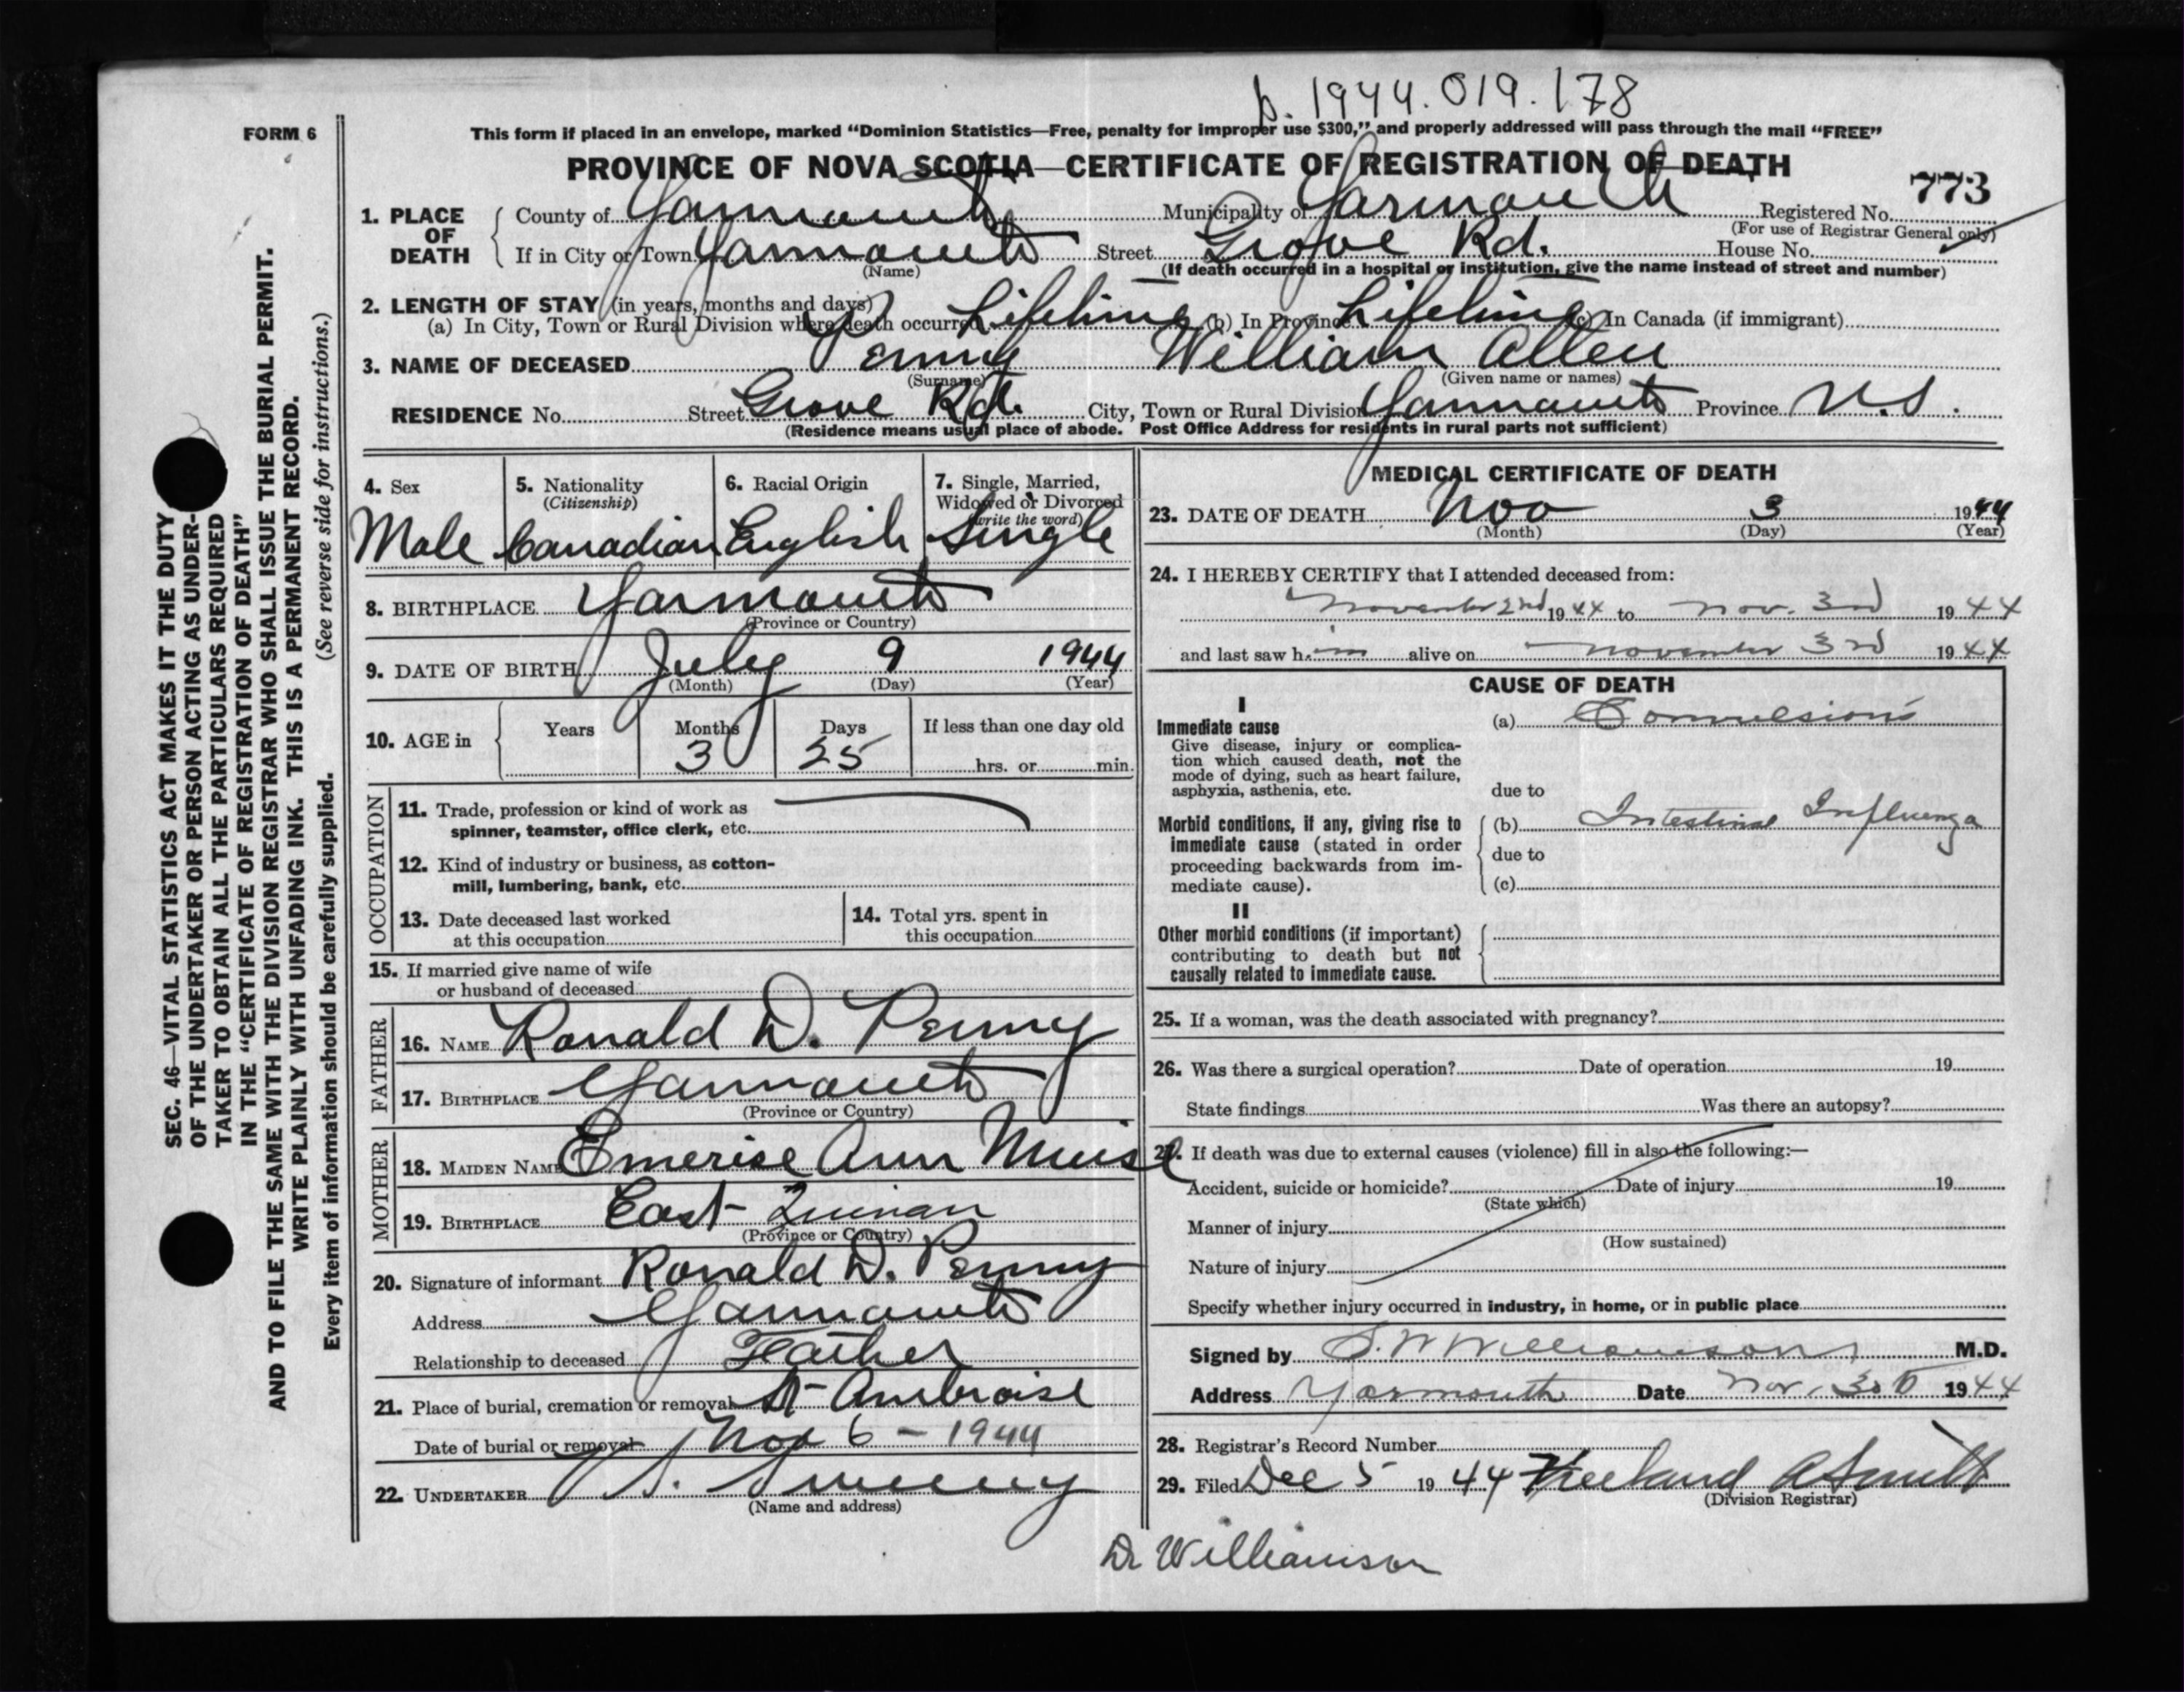 b. 1944.019.178
FORM 6
This form if placed in an envelope, marked "Dominion Statistics—Free, penalty for improper use $300," and properly addressed will pass through the mail "FREE"
PROVINCE OF NOVA SCOTIA—CERTIFICATE OF REGISTRATION OF DEATH
773
1. PLACE OF DEATH
County of Yarmouth Municipality of Yarmouth Registered No.
(For use of Registrar General only)
If in City or Town Yarmouth Street Grove Rd. House No.
(Name) (If death occurred in a hospital or institution, give the name instead of street and number)
2. LENGTH OF STAY (in years, months and days)
(a) In City, Town or Rural Division where death occurred Lifetime (b) In Province Lifetime (c) In Canada (if immigrant)
3. NAME OF DECEASED Penny William Allen
(Surname) (Given name or names)
RESIDENCE No. Street Grove Rd. City, Town or Rural Division Yarmouth Province N.S.
(Residence means usual place of abode. Post Office Address for residents in rural parts not sufficient)
4. Sex
Male
5. Nationality
(Citizenship)
Canadian
6. Racial Origin
English
7. Single, Married,
Widowed or Divorced
(write the word)
Single
8. BIRTHPLACE Yarmouth
(Province or Country)
9. DATE OF BIRTH July 9 1944
(Month) (Day) (Year)
10. AGE in
Years Months Days If less than one day old
3 25 hrs. or min.
OCCUPATION
11. Trade, profession or kind of work as
spinner, teamster, office clerk, etc.
12. Kind of industry or business, as cotton-
mill, lumbering, bank, etc.
13. Date deceased last worked
at this occupation
14. Total yrs. spent in
this occupation
15. If married give name of wife
or husband of deceased
FATHER
16. NAME Ronald D. Penny
17. BIRTHPLACE Yarmouth
(Province or Country)
MOTHER
18. MAIDEN NAME Emerise Ann Muise
19. BIRTHPLACE East Quinan
(Province or Country)
20. Signature of informant Ronald D. Penny
Address Yarmouth
Relationship to deceased Father
21. Place of burial, cremation or removal St Ambroise
Date of burial or removal Nov 6 - 1944
22. UNDERTAKER V.S. Sweeny
(Name and address)
MEDICAL CERTIFICATE OF DEATH
23. DATE OF DEATH Nov 3 1944
(Month) (Day) (Year)
24. I HEREBY CERTIFY that I attended deceased from:
November 2nd 1944 to Nov. 3rd 1944
and last saw him alive on November 3rd 1944
CAUSE OF DEATH
I
Immediate cause
Give disease, injury or complica-
tion which caused death, not the
mode of dying, such as heart failure,
asphyxia, asthenia, etc.
(a) Convulsions
due to
Morbid conditions, if any, giving rise to
immediate cause (stated in order
proceeding backwards from im-
mediate cause).
(b) Intestinal Influenza
due to
(c)
II
Other morbid conditions (if important)
contributing to death but not
causally related to immediate cause.
25. If a woman, was the death associated with pregnancy?
26. Was there a surgical operation? Date of operation 19
State findings Was there an autopsy?
27. If death was due to external causes (violence) fill in also the following:—
Accident, suicide or homicide? Date of injury 19
(State which)
Manner of injury
(How sustained)
Nature of injury
Specify whether injury occurred in industry, in home, or in public place
Signed by S.W Williamson M.D.
Address Yarmouth Date Nov. 3rd 1944
28. Registrar's Record Number
29. Filed Dec 5 1944 Freeland A Smith
(Division Registrar)
Dr Williamson
SEC. 46—VITAL STATISTICS ACT MAKES IT THE DUTY
OF THE UNDERTAKER OR PERSON ACTING AS UNDER-
TAKER TO OBTAIN ALL THE PARTICULARS REQUIRED
IN THE "CERTIFICATE OF REGISTRATION OF DEATH"
AND TO FILE THE SAME WITH THE DIVISION REGISTRAR WHO SHALL ISSUE THE BURIAL PERMIT.
WRITE PLAINLY WITH UNFADING INK. THIS IS A PERMANENT RECORD.
Every item of information should be carefully supplied. (See reverse side for instructions.)